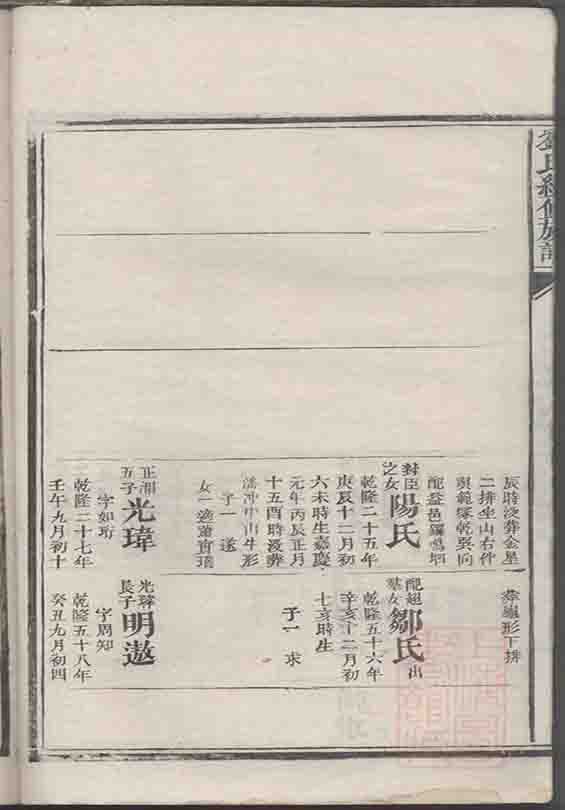 劉氏續修族譜
辰時沒葬金星
二排坐山右仵
配益邑羅鳴坰
封臣
之女
陽氏
乾隆二十五年
庚辰十二月初
六未時生嘉慶
元年丙辰正月
十五酉時沒葬
冲中山牛形
子一 遂
女一適蕭
正湘
五子
光瑋
字如珩
乾隆二十七年
壬午九月初十
葬 形下排
配
女
鄒氏
出
乾隆五十六年
辛亥十二月初
七亥時生
子一 求
光瑋
長子
明遨
字周知
乾隆五十八年
癸丑九月初四